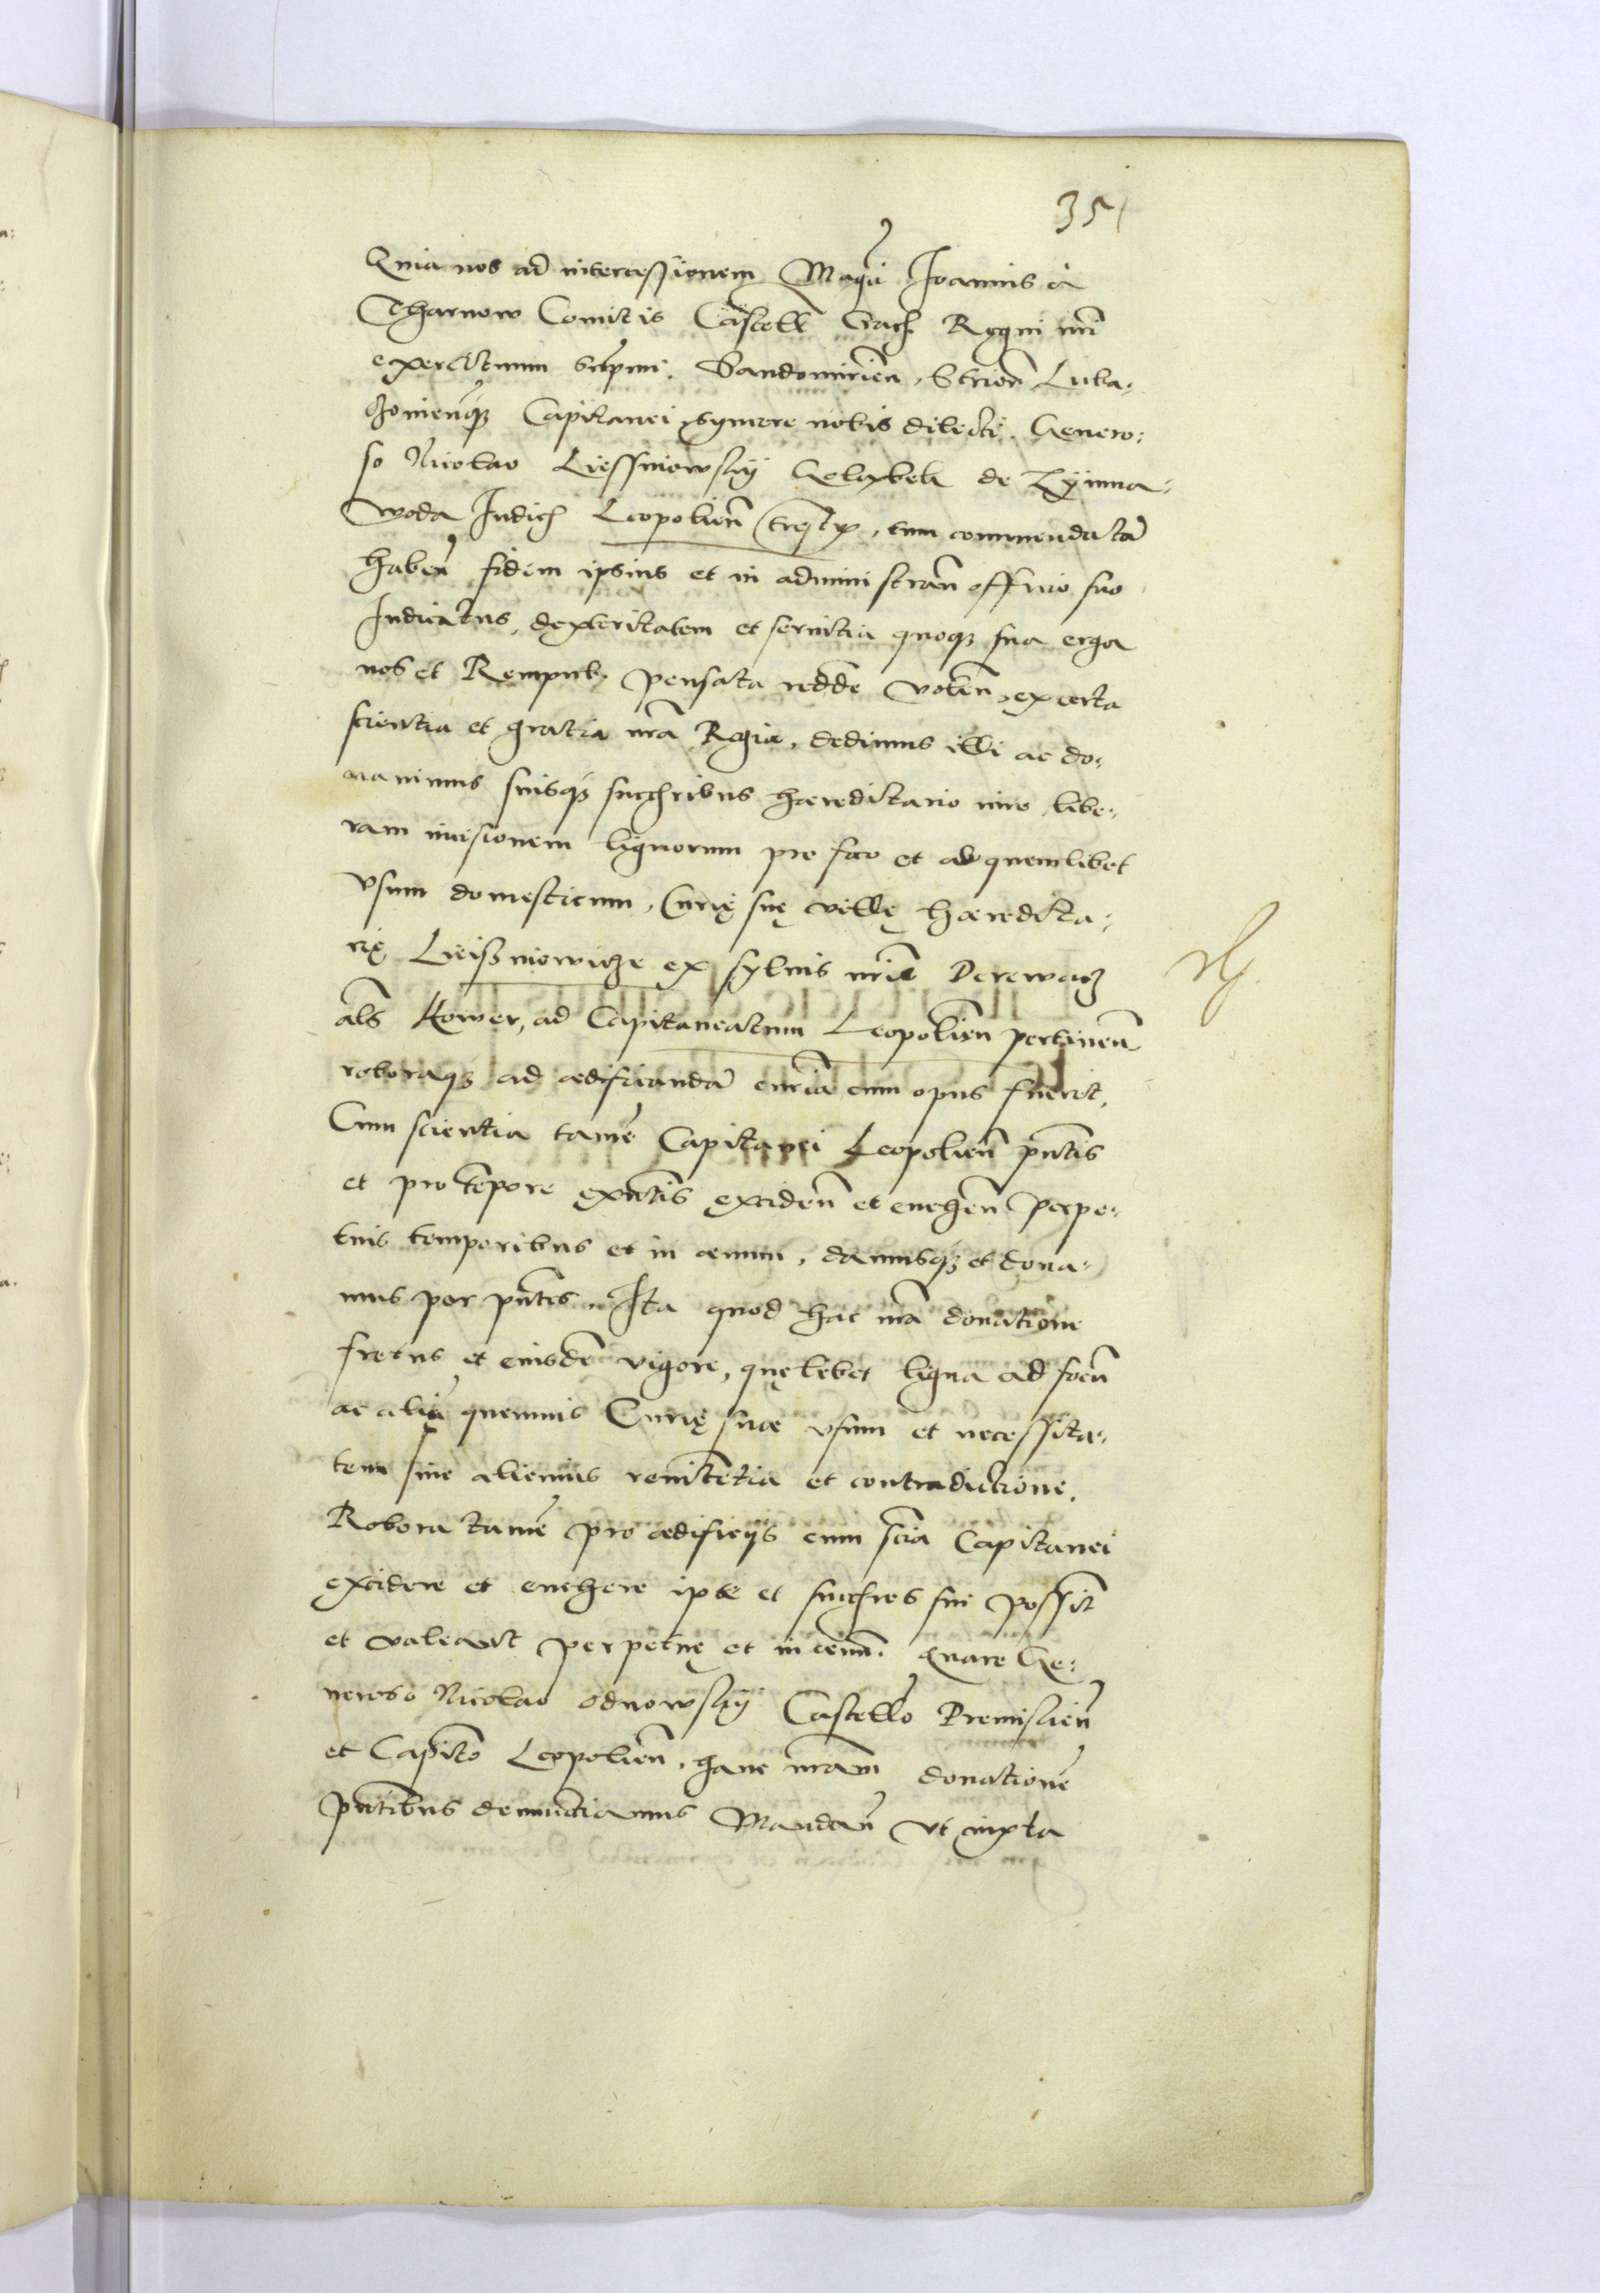 35
Quia nos ad intercessionem Magci Joannis à
Tharnow Comitis Castell Crac Regni nri
exercituum supmi. Sandomirien, Strien Luba-
Ezonienq Capitanei syncere nobis dilecti. Genero:
so Nicolao Liessniowsky de Zymna-
woda Judici Leopolien terrestri, tum commendatã
haben fidem ipsius et in administran officio suo
Judicatus, dexteritatem et servitia quoq sua erga
nos et Rempub. pensata reddẽ volen, ex certa
scientia et gratia nra Regia, dedimus illi ac do-
navimus suisq succribus hæreditario iure libe-
ram incisionem lignorum pro foco et ad quemlibet
usum domesticum, Curię suę villę hæredita-
rię Liesniowicze ex sylvis nris Derewacz
als Kower, ad Capitaneatum Leopolien pertinen
roboraq ad ædificandã curiã cum opus fuerit,
Cum scientia tamẽ Capitanei Leopolien pntis
et pro tempore exntis exciden et evehen perpe-
tuis temporibus et in ævum, damusq et dona-
mus per pntes. Ita quod hac nra donatione
fretus et eiusdẽ vigore, quęlibet ligna ad focũ
ac aliũ quemvis Curię suæ usum et necessita-
tem sine alicuius renitẽtia et contradictione.
Robora tamẽ pro ædificijs cum scia Capitanei
excidere et evehere ipse et succres sui possit
et valeant perpetuę et in ævum. Quare Ge-
neroso Nicolao Odnowsky Castello Premislien
et Capito Leopolien, hanc nram donationẽ
pntibus denunctiamus Mandan ut iuxta